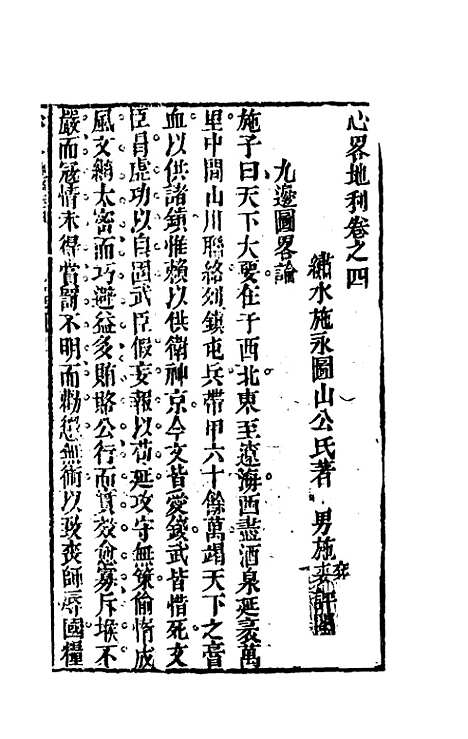 心畧地利卷之四
繡水施永圖山公氏著 男施 評閱
九邊圖畧論
施子曰天下大要在于西北東至遼海西盡酒泉延袤萬
里中間山川聯絡列鎮屯兵帶甲六十餘萬竭天下之膏
血以供諸鎮惟賴以供衛神京今文皆愛錢武皆惜死文
臣冐虛功以自固武臣假妄報以苟延攻守無策偷惰成
風文網太密而巧避益多賄賂公行而實效愈寡斥堠不
嚴而冦情未得賞罰不明而勸懲無術以致喪師辱國糧